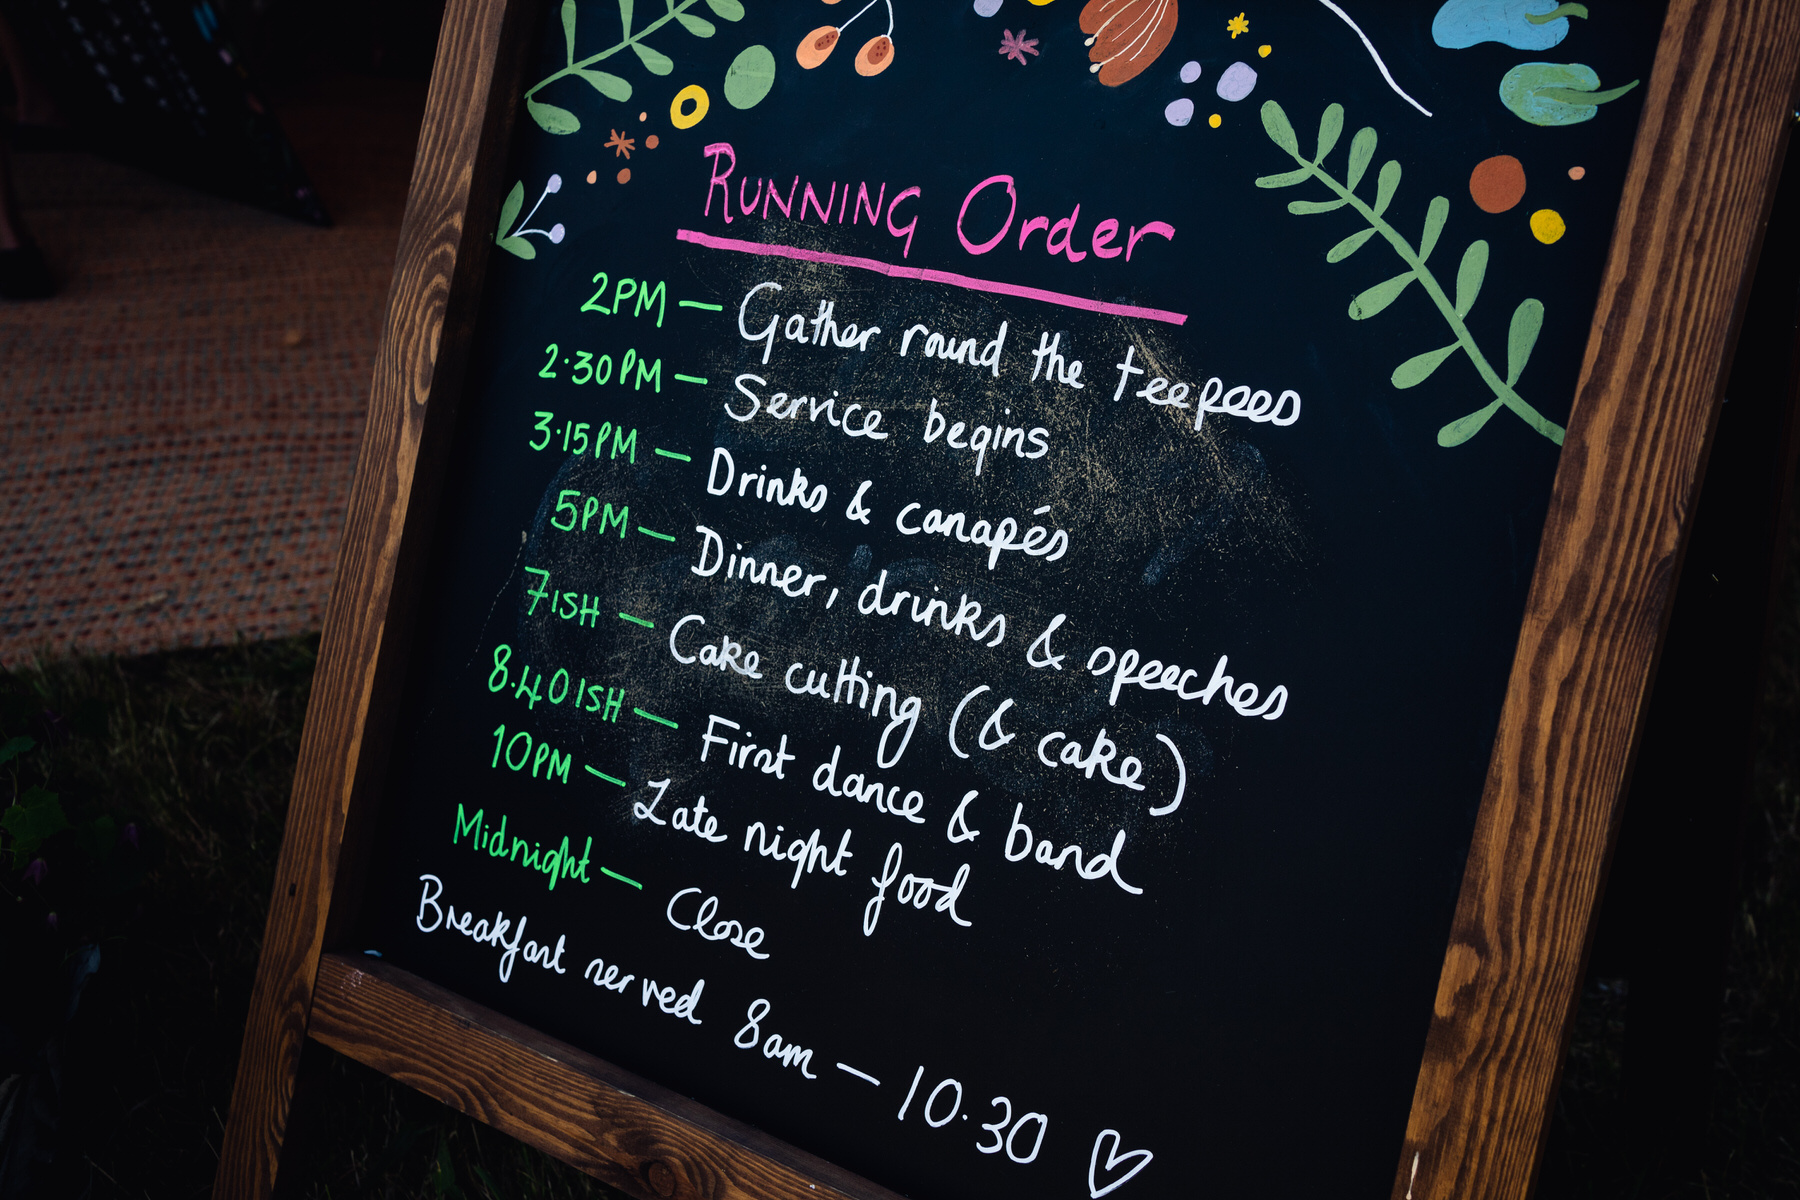 RUNNING Order
2PM — Gather round the teepees
2·30PM — Service begins
3·15PM — Drinks & canapés
5PM — Dinner, drinks & speeches
7ISH — Cake cutting (& cake)
8.40ISH — First dance & band
10PM — Late night food
Midnight — Close
Breakfast served 8am — 10·30 ♡